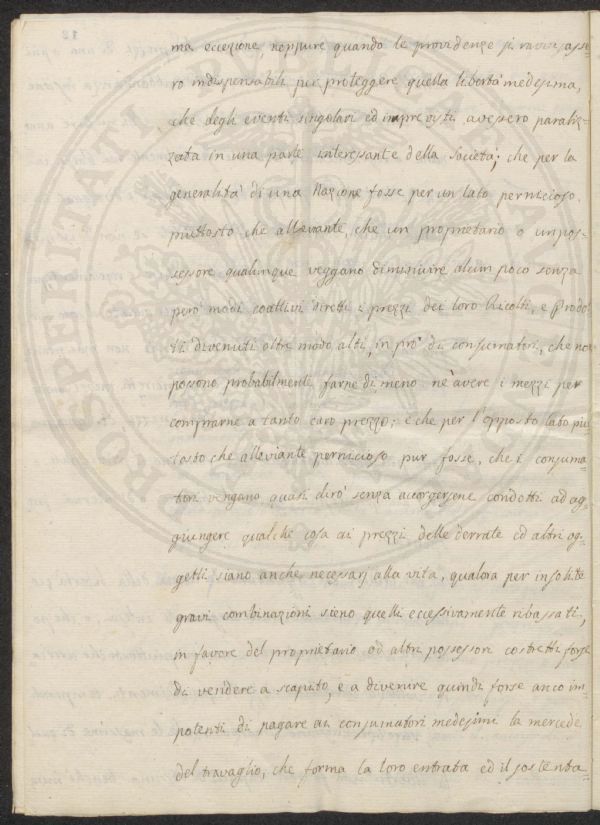 ma eccezione, neppure quando le providenze si ravvisasse-
ro indispensabili per proteggere quella libertà medesima,
che degli eventi singolari ed imprevisti avessero paraliz-
zata in una parte interessante della società; che per la
generalità di una Nazione fosse per un lato pernicioso
piuttosto che alleviante, che un proprietario o un pos-
sessore qualunque veggano diminuire alcun poco senza
però modi coattivi diretti i prezzi dei loro Ricolti, e Prodo-
ti divenuti oltre modo alti, in prò di consumatori, che non
possono probabilmente farne di meno nè avere i mezzi per
comprarne a tanto caro prezzo; e che per l'opposto lato piu
tosto che alleviante pernicioso pur fosse, che i consuma-
tori vengano quasi dirò senza accorgersene condotti ad ag-
giungere qualche cosa ai prezzi delle derrate ed altri og-
getti siano anche necessarj alla vita, qualora per insolite
gravi combinazioni sieno quelli eccessivamente ribassati,
in favore del proprietario od altri possessori costretti forse
di vendere a scapito, e a divenire quindi forse anco im-
potenti di pagare ai consumatori medesimi la mercede
del travaglio, che forma la loro entrata ed il sostenta-